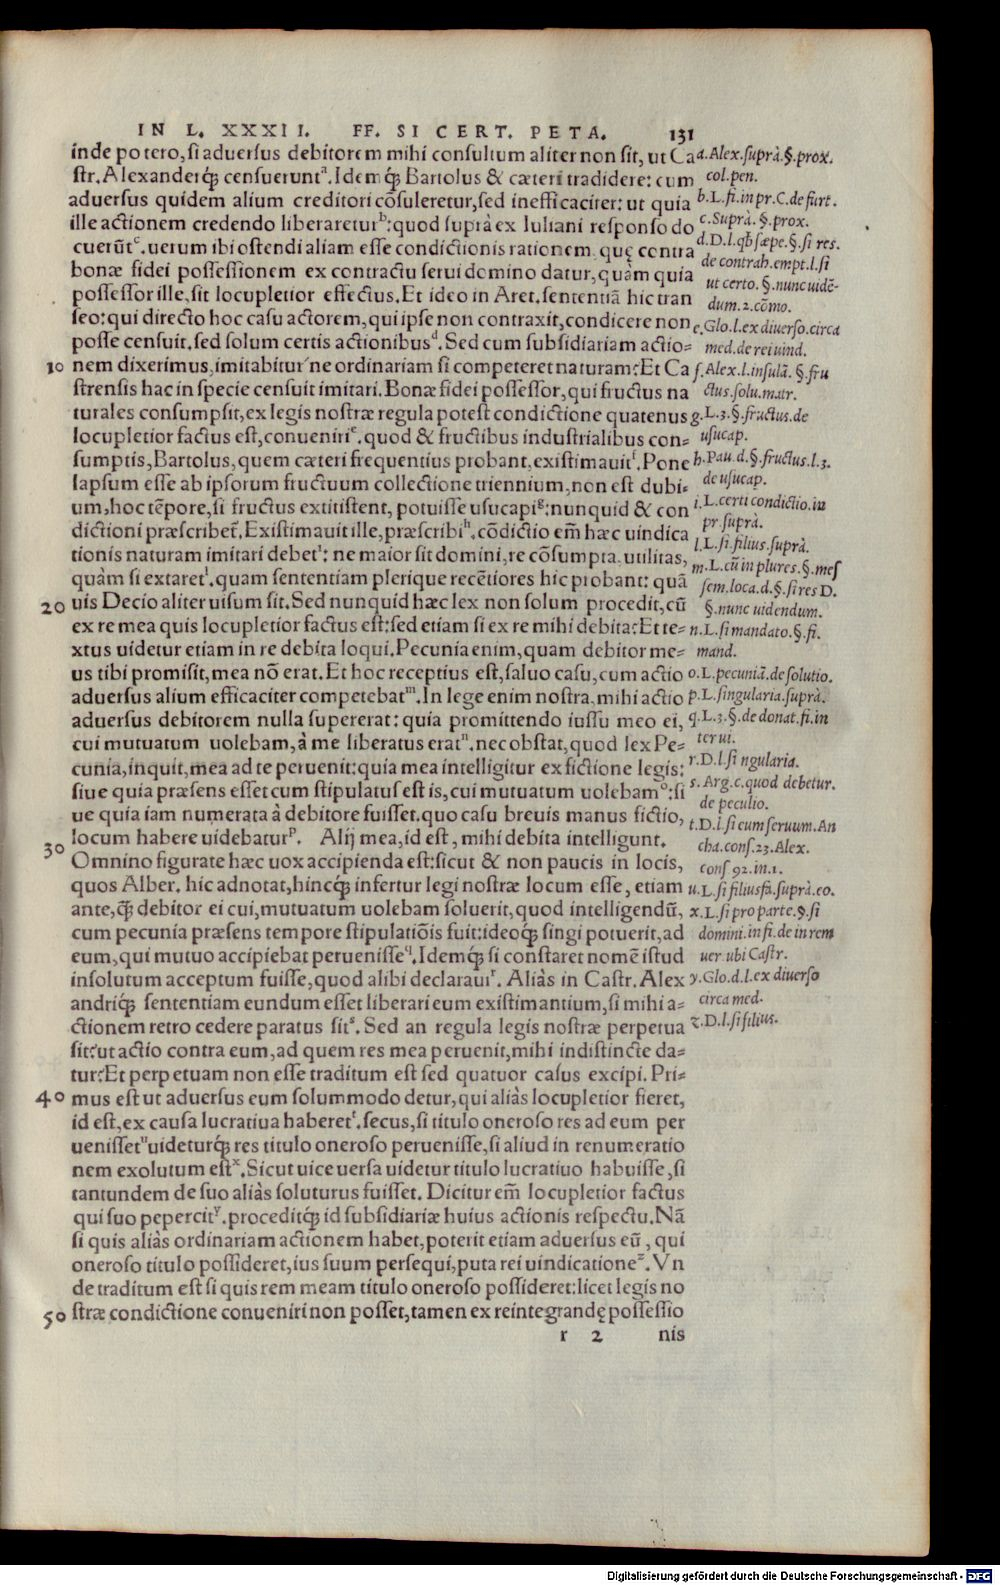 IN L. XXXII. FF. SI CERT. PETA. 131
inde potero, si aduersus debitorem mihi consultum aliter non sit, ut Ca
str. Alexanderq́; censueruntᵃ. Idemq́; Bartolus & cæteri tradidere: cum
aduersus quidem alium creditori cõsuleretur, sed inefficaciter: ut quia
ille actionem credendo liberareturᵇ: quod suprà ex Iuliani responso do
cuerũtᶜ. uerum ibi ostendi aliam esse condictionis rationem, quę contra
bonæ fidei possessionem ex contractu serui domino datur, quàm quia
possessor ille, sit locupletior effectus. Et ideo in Aret. sententiã hic tran
seo: qui directo hoc casu actorem, qui ipse non contraxit, condicere non
posse censuit, sed solum certis actionibusᵈ. Sed cum subsidiariam actio=
10 nem dixerimus, imitabitur ne ordinariam si competeret naturam? Et Ca
strensis hac in specie censuit imitari. Bonæ fidei possessor, qui fructus na
turales consumpsit, ex legis nostræ regula potest condictione quatenus
locupletior factus est, conueniriᵉ. quod & fructibus industrialibus con=
sumptis, Bartolus, quem cæteri frequentius probant, existimauitᶠ. Pone
lapsum esse ab ipsorum fructuum collectione triennium, non est dubi=
um, hoc tẽpore, si fructus extitissent, potuisse usucapiᵍ: nunquid & con
dictioni præscribet̃. Existimauit ille, præscribiʰ. cõdictio em̃ hæc uindica
tionis naturam imitari debetⁱ: ne maior sit domini, re cõsumpta, utilitas,
quàm si extaretˡ. quam sententiam plerique recẽtiores hic probant: quã
20 uis Decio aliter uisum sit. Sed nunquid hæc lex non solum procedit, cũ
ex re mea quis locupletior factus est: sed etiam si ex re mihi debita? Et te=
xtus uidetur etiam in re debita loqui. Pecunia enim, quam debitor me=
us tibi promisit, mea nõ erat. Et hoc receptius est, saluo casu, cum actio
aduersus alium efficaciter competebatᵐ. In lege enim nostra, mihi actio
aduersus debitorem nulla supererat: quia promittendo iussu meo ei,
cui mutuatum uolebam, à me liberatus eratⁿ. nec obstat, quod lex Pe=
cunia, inquit, mea ad te peruenit: quia mea intelligitur ex fictione legis:
siue quia præsens esset cum stipulatus est is, cui mutuatum uolebamᵒ: si
ue quia iam numerata à debitore fuisset. quo casu breuis manus fictio,
30 locum habere uidebaturᵖ. Alij mea, id est, mihi debita intelligunt.
Omnino figurate hæc uox accipienda est: sicut & non paucis in locis,
quos Alber. hic adnotat, hincq́; infertur legi nostræ locum esse, etiam
ante, q̃ȝ debitor ei cui, mutuatum uolebam soluerit, quod intelligendũ,
cum pecunia præsens tempore stipulatiõis fuit: ideoq́; singi potuerit, ad
eum, qui mutuo accipiebat peruenisse^q. Idemq́; si constaret nomẽ istud
insolutum acceptum fuisse, quod alibi declarauiʳ. Aliàs in Castr. Alex
andriq́; sententiam eundum esset liberari eum existimantium, si mihi a=
ctionem retro cedere paratus sitˢ. Sed an regula legis nostræ perpetua
sit? ut actio contra eum, ad quem res mea peruenit, mihi indistincte da=
tur? Et perpetuam non esse traditum est sed quatuor casus excipi. Pri=
40 mus est ut aduersus eum solummodo detur, qui aliàs locupletior fieret,
id est, ex causa lucratiua haberetᵗ. secus, si titulo oneroso res ad eum per
uenissetᵘ uideturq́; res titulo oneroso peruenisse, si aliud in renumeratio
nem exolutum estˣ. Sicut uice uersa uidetur titulo lucratiuo habuisse, si
tantundem de suo aliàs soluturus fuisset. Dicitur em̃ locupletior factus
qui suo pepercitʸ. proceditq́; id subsidiariæ huius actionis respectu. Nã
si quis aliàs ordinariam actionem habet, poterit etiam aduersus eũ, qui
oneroso titulo possideret, ius suum persequi, puta rei uindicationeᶻ. Vn
de traditum est si quis rem meam titulo oneroso possideret: licet legis no
50 stræ condictione conueniri non posset, tamen ex reintegrandę possessio
r 2 nis
a. Alex. suprà. §. prox.
col. pen.
b. L. fi. in pr. C. de furt.
c. Suprà. §. prox.
d. D. l. qb' sæpe. §. si res.
de contrah. empt. l. si
ut certo. §. nunc uidẽ-
dum. 2. cõmo.
e. Glo. l. ex diuerso. circa
med. de rei uind.
f. Alex. l. insulã. §. fru
ctus. solu. matr.
g. L. 3. §. fructus. de
usucap.
h. Pau. d. §. fructus. l. 3.
de usucap.
i. L. certi condictio. in
pr. suprà.
l. L. si. filius. suprà.
m. L. cũ in plures. §. mes
sem. loca. d. §. si res D.
§. nunc uidendum.
n. L. si mandato. §. fi.
mand.
o. L. pecuniã. de solutio.
p. L. singularia. suprà.
q. L. 3. §. de donat. fi. in
ter ui.
r. D. l. singularia.
s. Arg. c. quod debetur.
de peculio.
t. D. l. si cum seruum. An
cha. cons. 23. Alex.
cons 92. in. 1.
u. L. si filiusfã. suprà. eo.
x. L. si pro parte. §. si
domini. in fi. de in rem
uer. ubi Castr.
y. Glo. d. l. ex diuerso
circa med.
z. D. l. si filius.
Digitalisierung gefördert durch die Deutsche Forschungsgemeinschaft - DFG